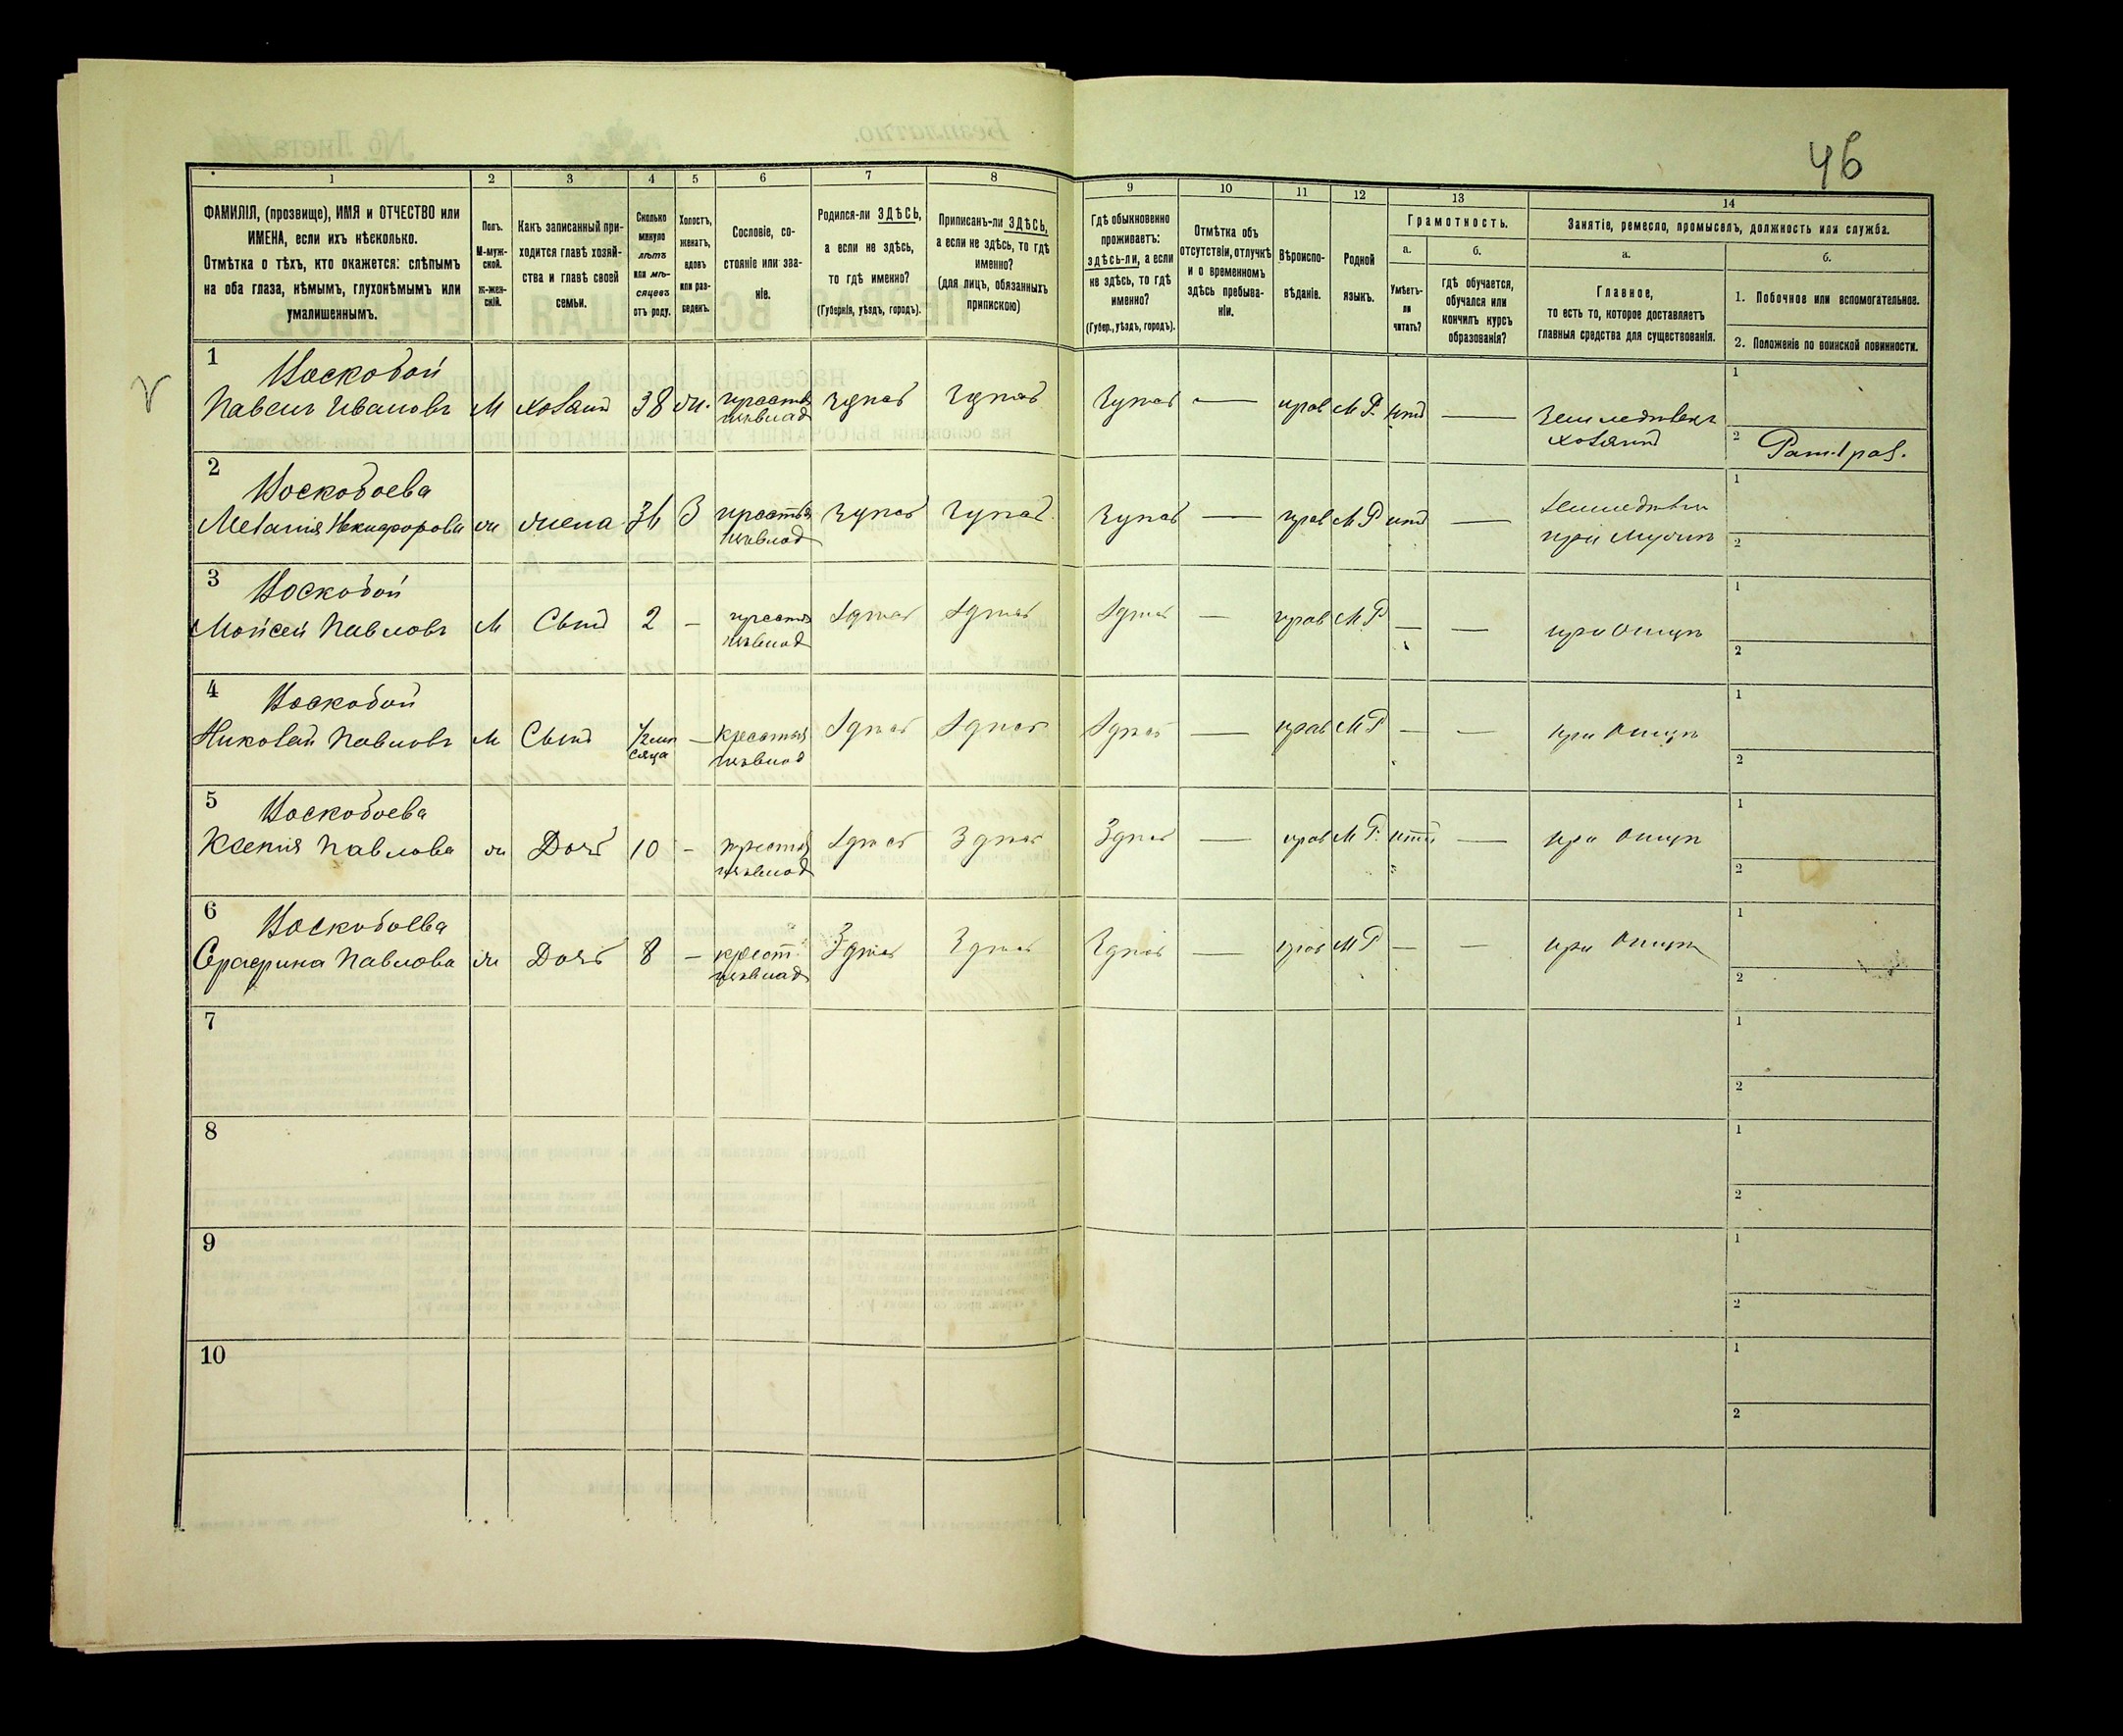 46
1 2 3 4 5 6 7 8 9 10 11 12 13 14
ФАМИЛІЯ, (прозвище), ИМЯ и ОТЧЕСТВО или
ИМЕНА, если ихъ нѣсколько.
Отмѣтка о тѣхъ, кто окажется: слѣпымъ
на оба глаза, нѣмымъ, глухонѣмымъ или
умалишеннымъ.
Полъ.
М-муж-
ской.
ж-жен-
скій.
Какъ записанный при-
ходится главѣ хозяй-
ства и главѣ своей
семьи.
Сколько
минуло
лѣтъ
или мѣ-
сяцевъ
отъ роду.
Холостъ,
женатъ,
вдовъ
или раз-
веденъ.
Сословіе, со-
стояніе или зва-
ніе.
Родился-ли ЗДѢСЬ,
а если не здѣсь,
то гдѣ именно?
(Губернія, уѣздъ, городъ).
Приписанъ-ли ЗДѢСЬ,
а если не здѣсь, то гдѣ
именно?
(для лицъ, обязанныхъ
припискою)
Гдѣ обыкновенно
проживаетъ:
здѣсь-ли, а если
не здѣсь, то гдѣ
именно?
(Губер., уѣздъ, городъ).
Отмѣтка объ
отсутствіи, отлучкѣ
и о временномъ
здѣсь пребыва-
ніи.
Вѣроиспо-
вѣданіе.
Родной
языкъ.
Грамотность.
а.
Умѣетъ-
ли
читать?
б.
гдѣ обучается,
обучался или
кончилъ курсъ
образованія?
Занятіе, ремесло, промыселъ, должность или служба.
а.
Главное,
то есть то, которое доставляетъ
главныя средства для существованія.
б.
1. Побочное или вспомогательное.
2. Положеніе по воинской повинности.
1
Воскобой
Павелъ Ивановъ М хозяинъ 38 ж. здѣсь здѣсь здѣсь — прав М Р. нѣтъ —
Земледѣлецъ
хозяинъ
1
2
2
Воскобоева
Меланія Никифорова ж жена 36 З здѣсь здѣсь здѣсь — прав М Р нѣтъ —
при мужѣ
1
2
3
Воскобой
Мойсей Павловъ М Сынъ 2 - здѣсь здѣсь здѣсь — прав М Р — — при отцѣ
1
2
4
Воскобой
Николай Павловъ М Сынъ — здѣсь здѣсь здѣсь — прав М Р — — при отцѣ
1
2
5
Воскобоева
Ксенія Павлова ж Дочь 10 - здѣсь здѣсь здѣсь — прав М Р. нѣтъ — при отцѣ
1
2
6
Воскобоева
Павлова ж Дочь 8 - крест. здѣсь здѣсь здѣсь — прав М Р — — при отцѣ
1
2
7
1
2
8
1
2
9
1
2
10
1
2